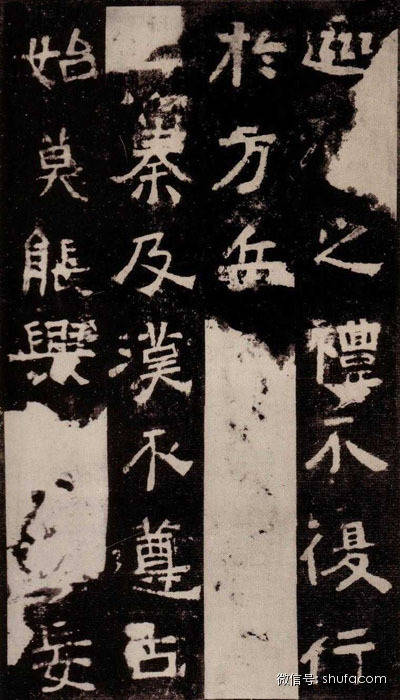 之禮不復行
於方岳
秦及漢不遵古
始莫能
微信号: shufa.com